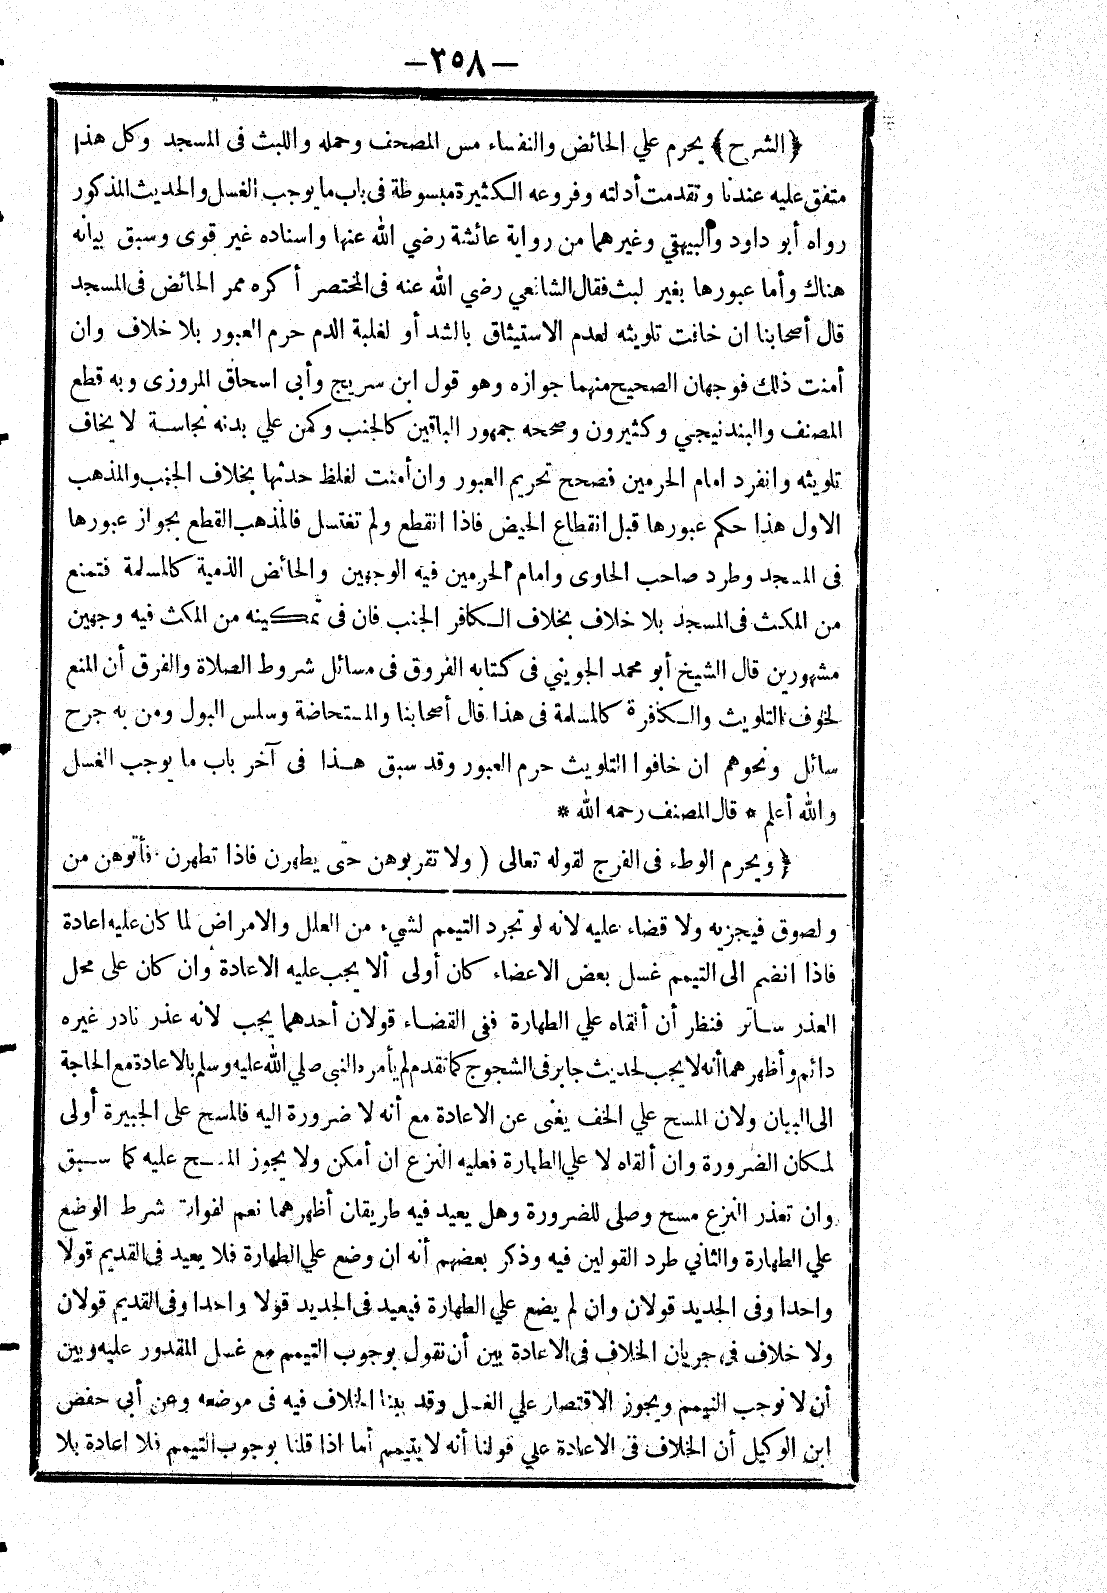 —٣٥٨—
﴿الشرح﴾ يحرم علي الحائض والنفساء مس المصحف وحمله واللبث فى المسجد وكل هذا
متفق عليه عندنا وتقدمت أدلته وفروعه الكثيرة مبسوطة فى باب ما يوجب الغسل والحديث المذكور
رواه أبو داود والبيهقي وغيرهما من رواية عائشة رضي الله عنها واسناده غير قوى وسبق بيانه
هناك وأما عبورها بغير لبث فقال الشافعي رضي الله عنه فى المختصر أكره ممر الحائض فى المسجد
قال أصحابنا ان خافت تلويثه لعدم الاستيثاق بالشد أو لغلبة الدم حرم العبور بلا خلاف وان
أمنت ذلك فوجهان الصحيح منهما جوازه وهو قول ابن سريج وأبى اسحاق المروزى وبه قطع
المصنف والبندنيجي وكثيرون وصححه جمهور الباقين كالجنب وكمن علي بدنه نجاسة لا يخاف
تلويثه وانفرد امام الحرمين فصحح تحريم العبور وان أمنت لغلظ حدثها بخلاف الجنب والمذهب
الاول هذا حكم عبورها قبل انقطاع الحيض فاذا انقطع ولم تغتسل فالمذهب القطع بجواز عبورها
فى المسجد وطرد صاحب الحاوى وامام الحرمين فيه الوجهين والحائض الذمية كالمسلمة فتمنع
من المكث فى المسجد بلا خلاف بخلاف الكافر الجنب فان فى تمكينه من المكث فيه وجهين
مشهورين قال الشيخ أبو محمد الجويني فى كتابه الفروق فى مسائل شروط الصلاة والفرق أن المنع
لخوف التلويث والكافرة كالمسلمة فى هذا قال أصحابنا والمستحاضة وسلس البول ومن به جرح
سائل ونحوهم ان خافوا التلويث حرم العبور وقد سبق هذا فى آخر باب ما يوجب الغسل
والله أعلم * قال المصنف رحمه الله *
﴿ويحرم الوطء فى الفرج لقوله تعالى ( ولا تقربوهن حتى يطهرن فاذا تطهرن فأتوهن من
ولصوق فيجزيه ولا قضاء عليه لانه لو تجرد التيمم لشيء من العلل والامراض لما كان عليه اعادة
فاذا انضم الى التيمم غسل بعض الاعضاء كان أولى ألا يجب عليه الاعادة وان كان على محل
العذر ساتر فنظر أن ألقاه علي الطهارة ففى القضاء قولان أحدهما يجب لانه عذر نادر غيره
دائم وأظهرهما أنه لا يجب لحديث جابر فى الشجوج كما تقدم لم يأمره النبى صلي الله عليه وسلم بالاعادة مع الحاجة
الى البيان ولان المسح علي الخف يغنى عن الاعادة مع أنه لا ضرورة اليه فالمسح على الجبيرة أولى
لمكان الضرورة وان ألقاه لا علي الطهارة فعليه النزع ان أمكن ولا يجوز المسح عليه كما سبق
وان تعذر النزع مسح وصلى للضرورة وهل يعيد فيه طريقان أظهرهما نعم لفوات شرط الوضع
علي الطهارة والثاني طرد القولين فيه وذكر بعضهم أنه ان وضع علي الطهارة فلا يعيد فى القديم قولا
واحدا وفى الجديد قولان وان لم يضع علي الطهارة فيعيد فى الجديد قولا واحدا وفى القديم قولان
ولا خلاف فى جريان الخلاف فى الاعادة بين أن نقول بوجوب التيمم مع غسل المقدور عليه وبين
أن لا نوجب التيمم ويجوز الاقتصار علي الغسل وقد بينا الخلاف فيه فى موضعه وعن أبي حفص
ابن الوكيل أن الخلاف فى الاعادة علي قولنا أنه لا يتيمم أما اذا قلنا بوجوب التيمم فلا اعادة بلا